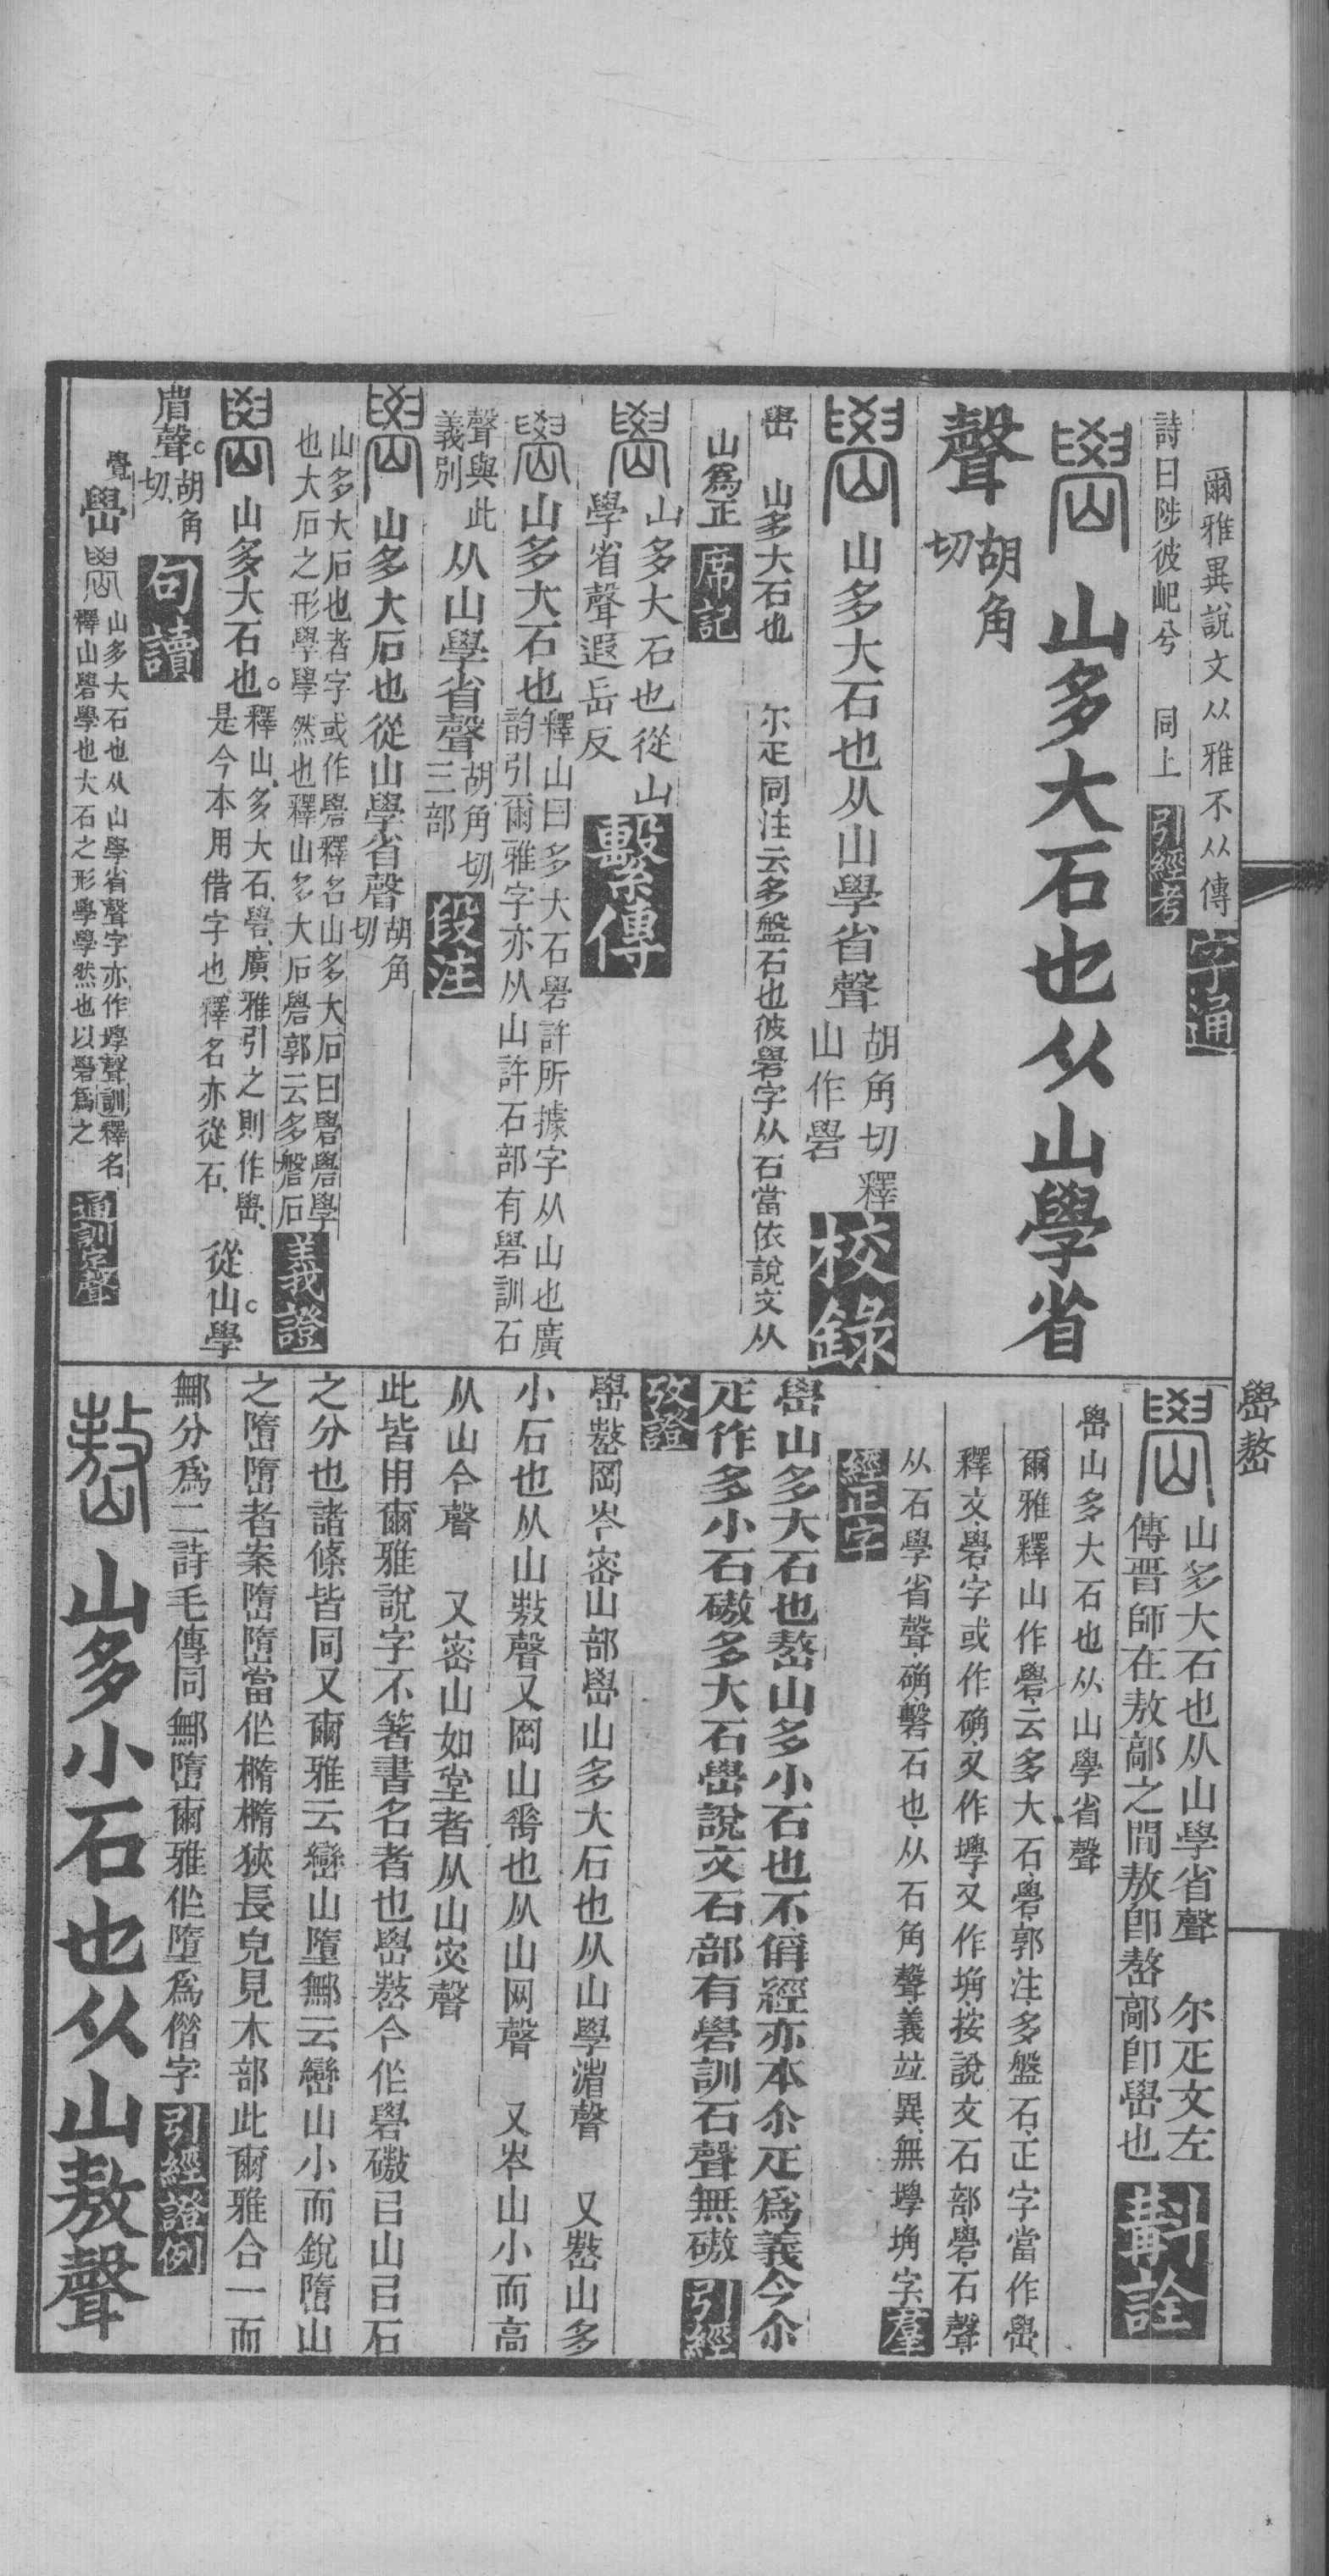 爾雅異說文从雅不从傳 字通
詩曰陟彼屺兮 同上 引經考
山多大石也从山學省
聲 胡角切
山多大石也从山學省聲 胡角切釋山作礐 校錄
嶨 山多大石也 尒疋同注云多盤石也彼礐字从石當依說文从
山爲正 席記
山多大石也從山學省聲遐岳反 繫傳
山多大石也 釋山曰多大石礐許所據字从山也廣韵引爾雅字亦从山許石部有礐訓石
聲與此義別 从山學省聲 胡角切三部 段注
山多大石也從山學省聲 胡角切
山多大石也者字或作礐釋名山多大石曰礐礐學也大石之形學學然也釋山多大石礐郭云多盤石 義證
山多大石也。釋山、多大石、礐、廣雅引之則作嶨、是今本用借字也釋名亦從石、從山。學
省聲。胡角切 句讀
覺 嶨 山多大石也从山學省聲字亦作㙾聲訓釋名釋山礐學也大石之形學學然也以礐爲之 通訓定聲
嶨嶅
山多大石也从山學省聲 尒疋文左傳晋師在敖鄗之間敖卽嶅鄗卽嶨也 斠詮
嶨山多大石也从山學省聲
爾雅釋山作礐云多大石礐郭注多盤石正字當作嶨
釋文礐字或作确又作㙾又作埆按說文石部礐石聲
从石學省聲确磬石也从石角聲義竝異無㙾埆字 羣
經正字
嶨山多大石也嶅山多小石也不偁經亦本尒疋爲義今尒
疋作多小石磝多大石嶨說文石部有礐訓石聲無磝 引經
攷證
嶨嶅岡岑密山部嶨山多大石也从山學省聲 又嶅山多
小石也从山敖聲又岡山脊也从山网聲 又岑山小而高
从山今聲 又密山如堂者从山宓聲
此皆用爾雅說字不箸書名者也嶨嶅今作礐磝㠯山㠯石
之分也諸條皆同又爾雅云巒山墮鄦云巒山小而銳隋山
之隋隋者案隋隋當作橢橢狹長皃見木部此爾雅合一而
鄦分爲二詩毛傳同鄦隋爾雅作墮爲僭字 引經證例
山多小石也从山敖聲